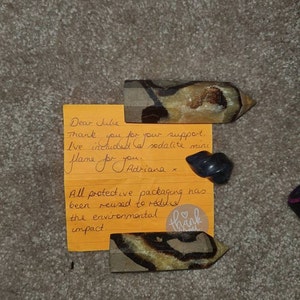 Dear Julie,
Thank you for your support
I've included a sodalite mini
flame for you
Adriana x
All protective packaging has
been reused to reduce
the environmental
impact
thank